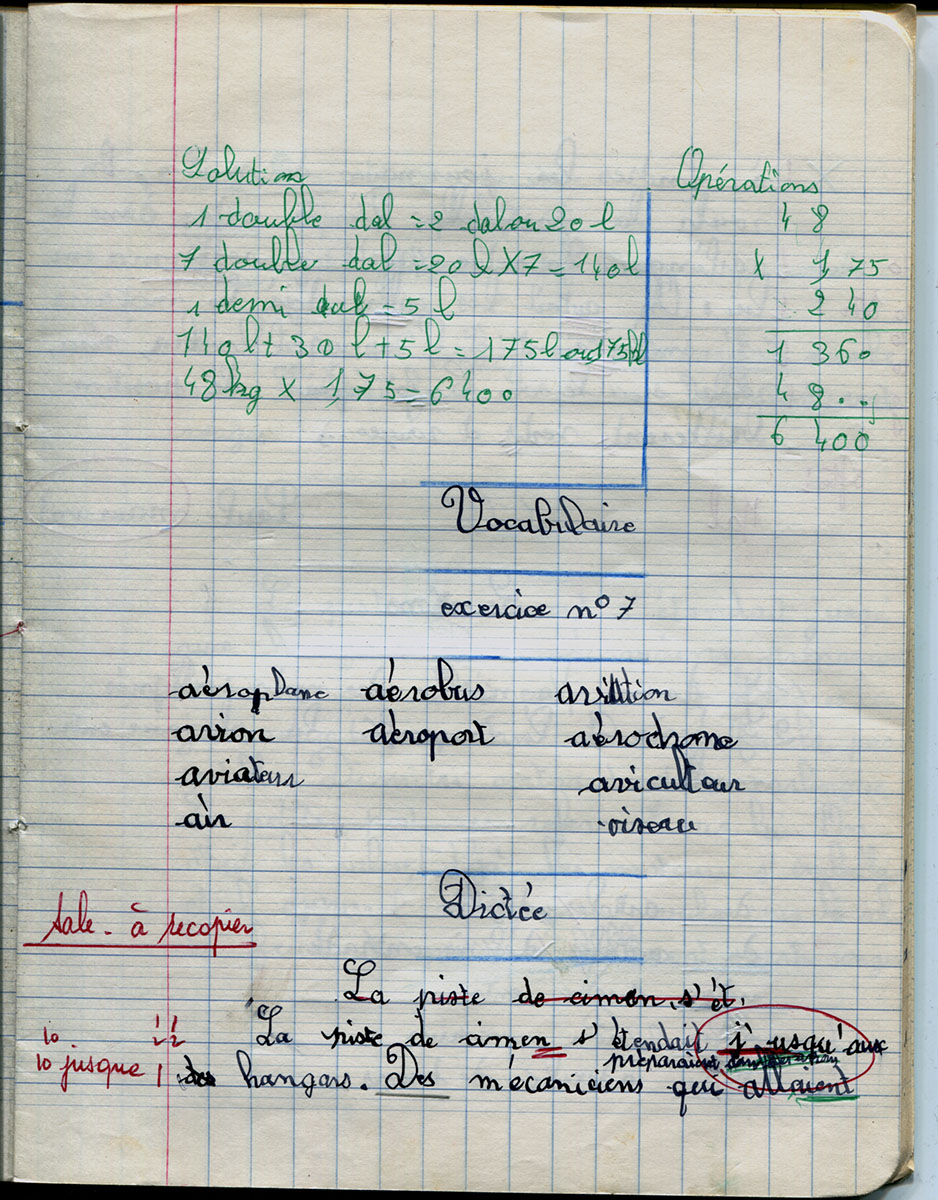 Solution
1 double dal = 2 dal ou 20 l
7 double dal = 20 l X 7 = 140 l
1 demi dal = 5 l
140 l + 30 l + 5 l = 175 l ou 1,75 hl
48 kg x 1,75 = 6 400
Opérations
48
x 1,75
240
1 360
48..
6 400
Vocabulaire
exercice n° 7
aéroplane aérobus aviation
avion aéroport aérodrome
aviateur aviculteur
air oiseau
Dictée
sale - à recopier
La piste de cimen s'ét
La piste de cimen s'étendait j'usqu'aux
10
préparaient
10 jusque
hangars. Des mécaniciens qui allaient